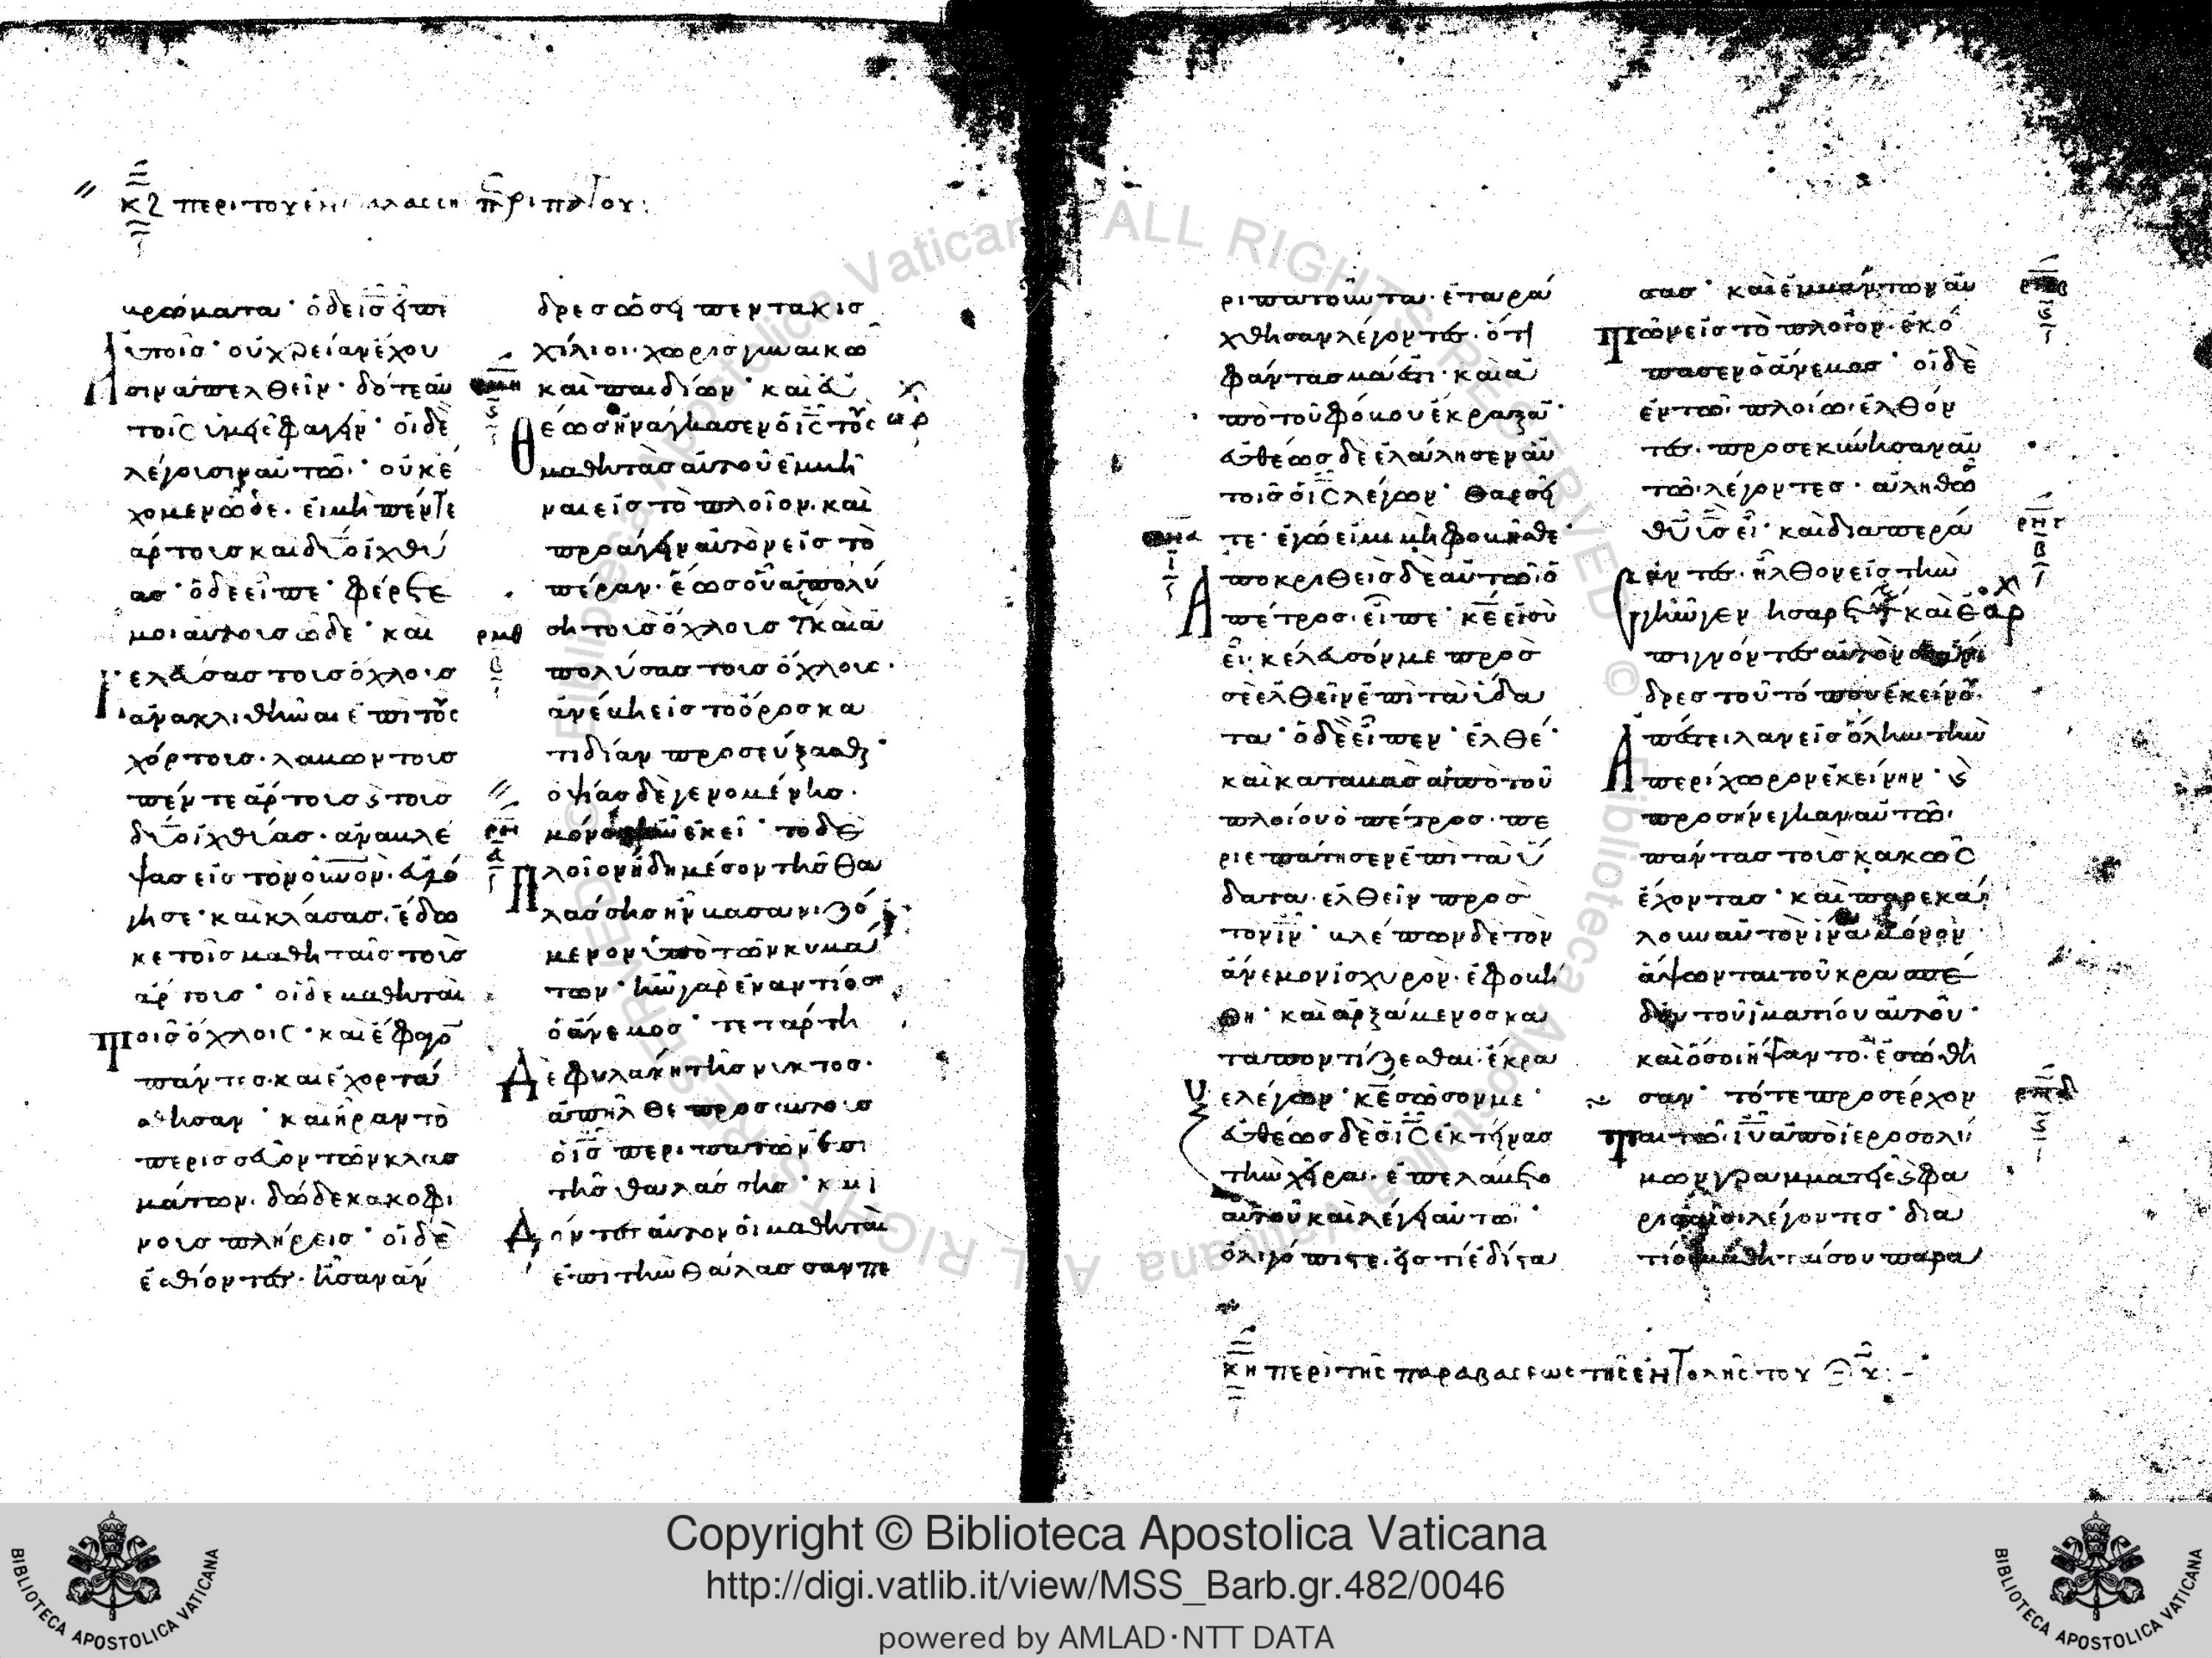 κζ περι του εν θαλάσση περιπάτου:
βρώματα· ὁ δὲ ισ εἶπεν
αὐτοῖσ· οὐ χρείαν ἔχου
σιν ἀπελθεῖν· δότε αὐ
τοῖς ὑμεῖς φαγεῖν· οἱ δὲ
λέγουσιν αὐτῶ· οὐκ ἔ
χομεν ὧδε· εἰ μὴ πέντε
ἄρτουσ καὶ δύο ἰχθύ
ασ· ὁ δὲ εἶπε· φέρετε
μοι αὐτοὺσ ὧδε· καὶ
κελεύσασ τοὺσ ὄχλουσ
ἀνακλιθῆναι ἐπὶ τοὺς
χόρτουσ· λαβὼν τοὺσ
πέντε ἄρτουσ ϗ τοὺσ
δύο ἰχθύασ· ἀναβλέ
ψασ εἰσ τὸν οὐνον· εὐλό
γησε· καὶ κλάσασ· ἔδω
κε τοῖσ μαθηταῖσ τοὺσ
ἄρτουσ· οἱ δὲ μαθηταὶ
τοῖσ ὄχλοις· καὶ ἔφαγον
πάντεσ· καὶ ἐχορτά
σθησαν· καὶ ἦραν τὸ
περισσεῦον τῶν κλασ
μάτων· δώδεκα κοφί
νουσ πλήρεισ· οἱ δὲ
ἐσθίοντεσ· ἦσαν ἄν
δρεσ ὡσεὶ πεντακισ
χίλιοι· χωρὶσ γυναικῶ
καὶ παιδίων· καὶ εὐ
θέωσ ἠνάγκασεν ὁ ις τοὺς
μαθητὰσ αὐτοῦ ἐμβῆ
ναι εἰσ τὸ πλοῖον· καὶ
προάγειν αὐτὸν εἰσ τὸ
πέραν· ἕωσ οὗ ἀπολύ
ση τοὺσ ὄχλουσ· καὶ ἀ
πολύσασ τοὺσ ὄχλους·
ἀνέβη εἰσ τὸ ὄροσ κα
τιδίαν προσεύξασθαι·
ὀψίασ δὲ γενομένησ·
μόνοσ ἦν ἐκεῖ· τὸ δὲ
πλοῖον ἤδη μέσον τῆσ θα
λάσσησ ἦν βασανιζό
μενον ὑπὸ τῶν κυμά
των· ἦν γὰρ ἐναντίοσ
ὁ ἄνεμοσ· τετάρτη
δὲ φυλακῆ τῆσ νυκτοσ·
ἀπῆλθε προσ αὐτουσ
ὁ ισ περιπατῶν ἐπὶ
τῆσ θαλάσσησ· κ ϊ
δόντεσ αὐτὸν οἱ μαθηταὶ
ἐπὶ τὴν θάλασσαν πε
ριπατοῦντα· ἐταρά
χθησαν λέγοντεσ· ὅτι
φάντασμά ἐστι· καὶ ἀ
πὸ τοῦ φόβου ἔκραξαν·
εὐθέωσ δὲ ἐλάλησεν αὐ
τοῖσ ὁ ις λέγων· θαρσεῖ
τε· ἐγώ εἰμι μὴ φοβεῖσθε·
ἀποκριθεὶσ δὲ αὐτῶ ὁ
πέτροσ· εἶπε· κε εἰ σὺ
εἶ· κέλευσόν με πρὸσ
σὲ ἐλθεῖν ἐπὶ τὰ ὕδα
τα· ὁ δὲ εἶπεν· ἐλθέ·
καὶ καταβὰσ ἀπὸ τοῦ
πλοίου ὁ πέτροσ· πε
ριεπάτησεν ἐπὶ τὰ ὕ
δατα· ἐλθεῖν πρὸσ
τὸν ιν· βλέπων δὲ τὸν
ἄνεμον ἰσχυρὸν· ἐφοβή
θη· καὶ ἀρξάμενοσ κα
ταποντίζεσθαι· ἔκρα
ξε λέγων· κε σῶσόν με·
εὐθέωσ δὲ ὁ ις ἐκτείνασ
τὴν χεῖρα· ἐπελάβετο
αὐτοῦ καὶ λέγει αὐτῶ·
ὀλιγόπιστε· εἰσ τί ἐδίστα
σασ· καὶ ἐμβάντων αὐ
τῶν εἰσ τὸ πλοῖον· ἐκό
πασεν ὁ ἄνεμοσ· οἱ δὲ
ἐν τῶ πλοίω· ἐλθόν
τεσ· προσεκύνησαν αὐ
τῶ· λέγοντεσ· ἀληθῶσ
θυ υσ εἶ· καὶ διαπερά
σαντεσ· ἦλθον εἰσ τὴν
γῆν γεννησαρέτ· καὶ ἐ
πιγνόντεσ αὐτὸν οἱ ἄν
δρεσ τοῦ τόπου ἐκείνου·
ἀπέστειλαν εἰσ ὅλην τὴν
περίχωρον ἐκείνην· ϗ
προσήνεγκαν αὐτῶ·
πάντασ τοὺσ κακῶς
ἔχοντασ· καὶ παρεκά
λουν αὐτὸν ἵνα μόνον
ἅψωνται τοῦ κρασπέ
δου τοῦ ἱματίου αὐτοῦ·
καὶ ὅσοι ἥψαντο· ἐσώθη
σαν· τότε προσέρχον
ται τῶ ιυ ἀπὸ ἱεροσολύ
μων γραμματεῖσ ϗ φα
ρισαῖοι λέγοντεσ· δια
τί οἱ μαθηταί σου παρα
κη περὶ τῆς παραβάσεως τῆς ἐντολῆς του θυ:-